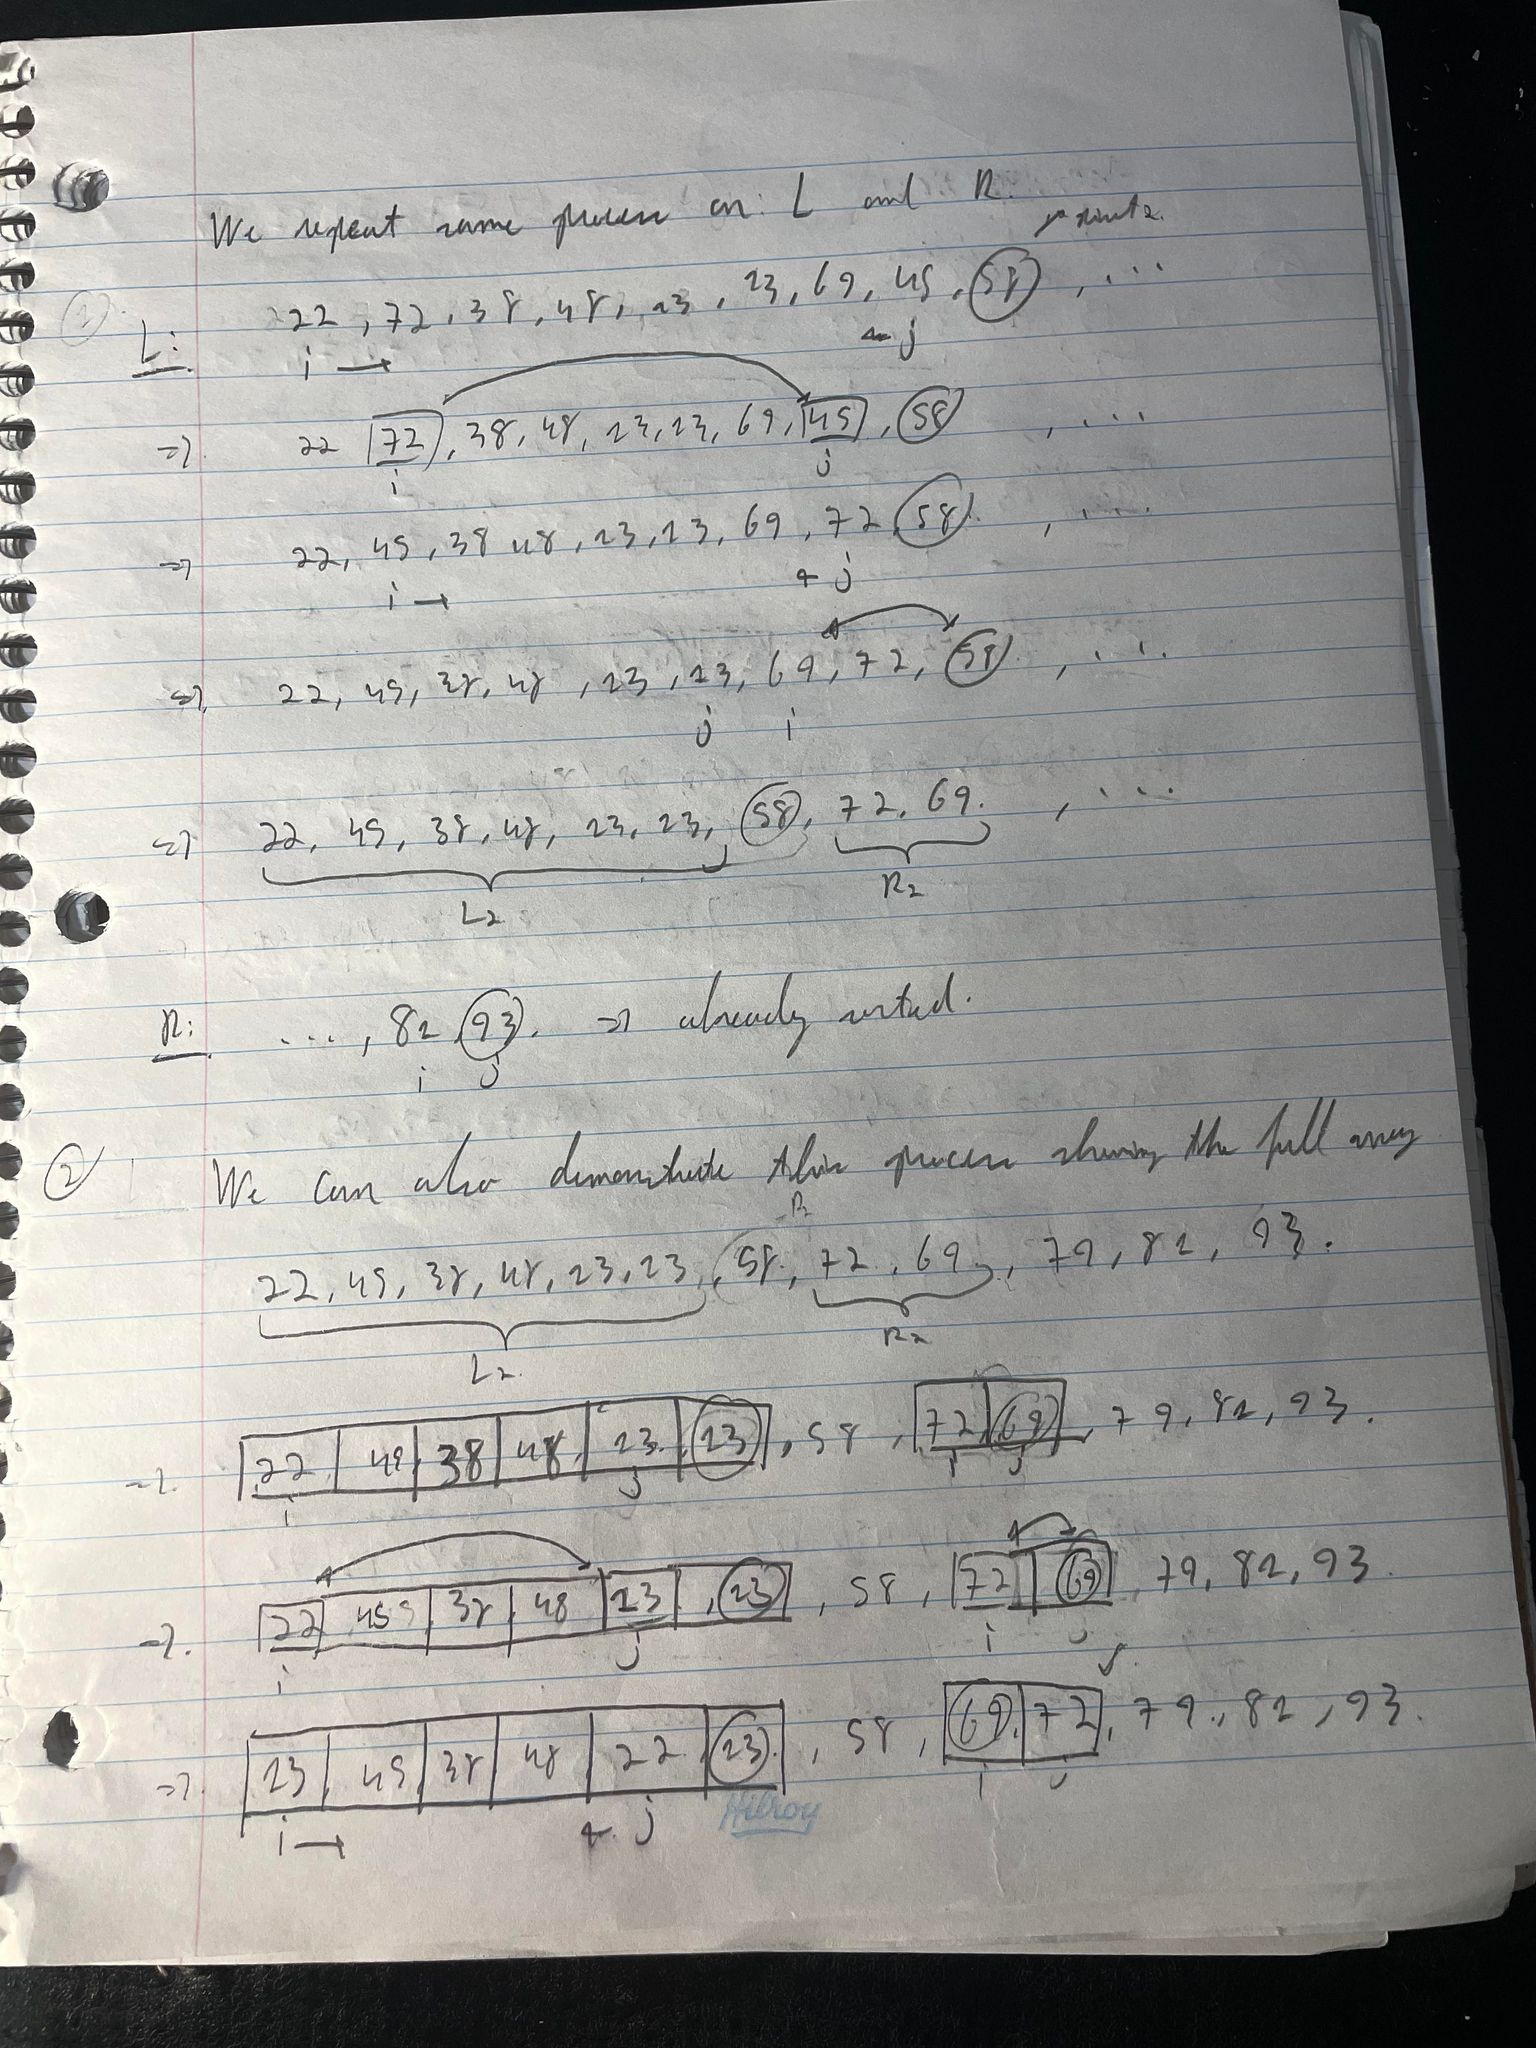 We repeat same process on: L and R.
pivot 2.
L: 22, 72, 38, 48, 23, 23, 69, 45, 58, ...
i → ← j
=> 22 72, 38, 48, 23, 23, 69, 45, 58 , ...
i j
=> 22, 45, 38 48, 23, 23, 69, 72 58. , ...
i → ← j
=> 22, 45, 38, 48, 23, 23, 69, 72, 58 , ...
j i
=> 22, 45, 38, 48, 23, 23, 58, 72, 69. , ...
L2 R2
R: ..., 82 93. => already sorted.
i j
2 We can also demonstrate this process showing the full array
22, 45, 38, 48, 23, 23, 58, 72, 69, 79, 82, 93.
L2 R2
=> 22 45 38 48 23 23, 58, 72 69, 79, 82, 93.
i j i j
=> 22 45 38 48 23, 23, 58, 72 69, 79, 82, 93.
i j i j
=> 23 45 38 48 22 23, 58, 69 72, 79, 82, 93.
i → ← j i j
Hilroy